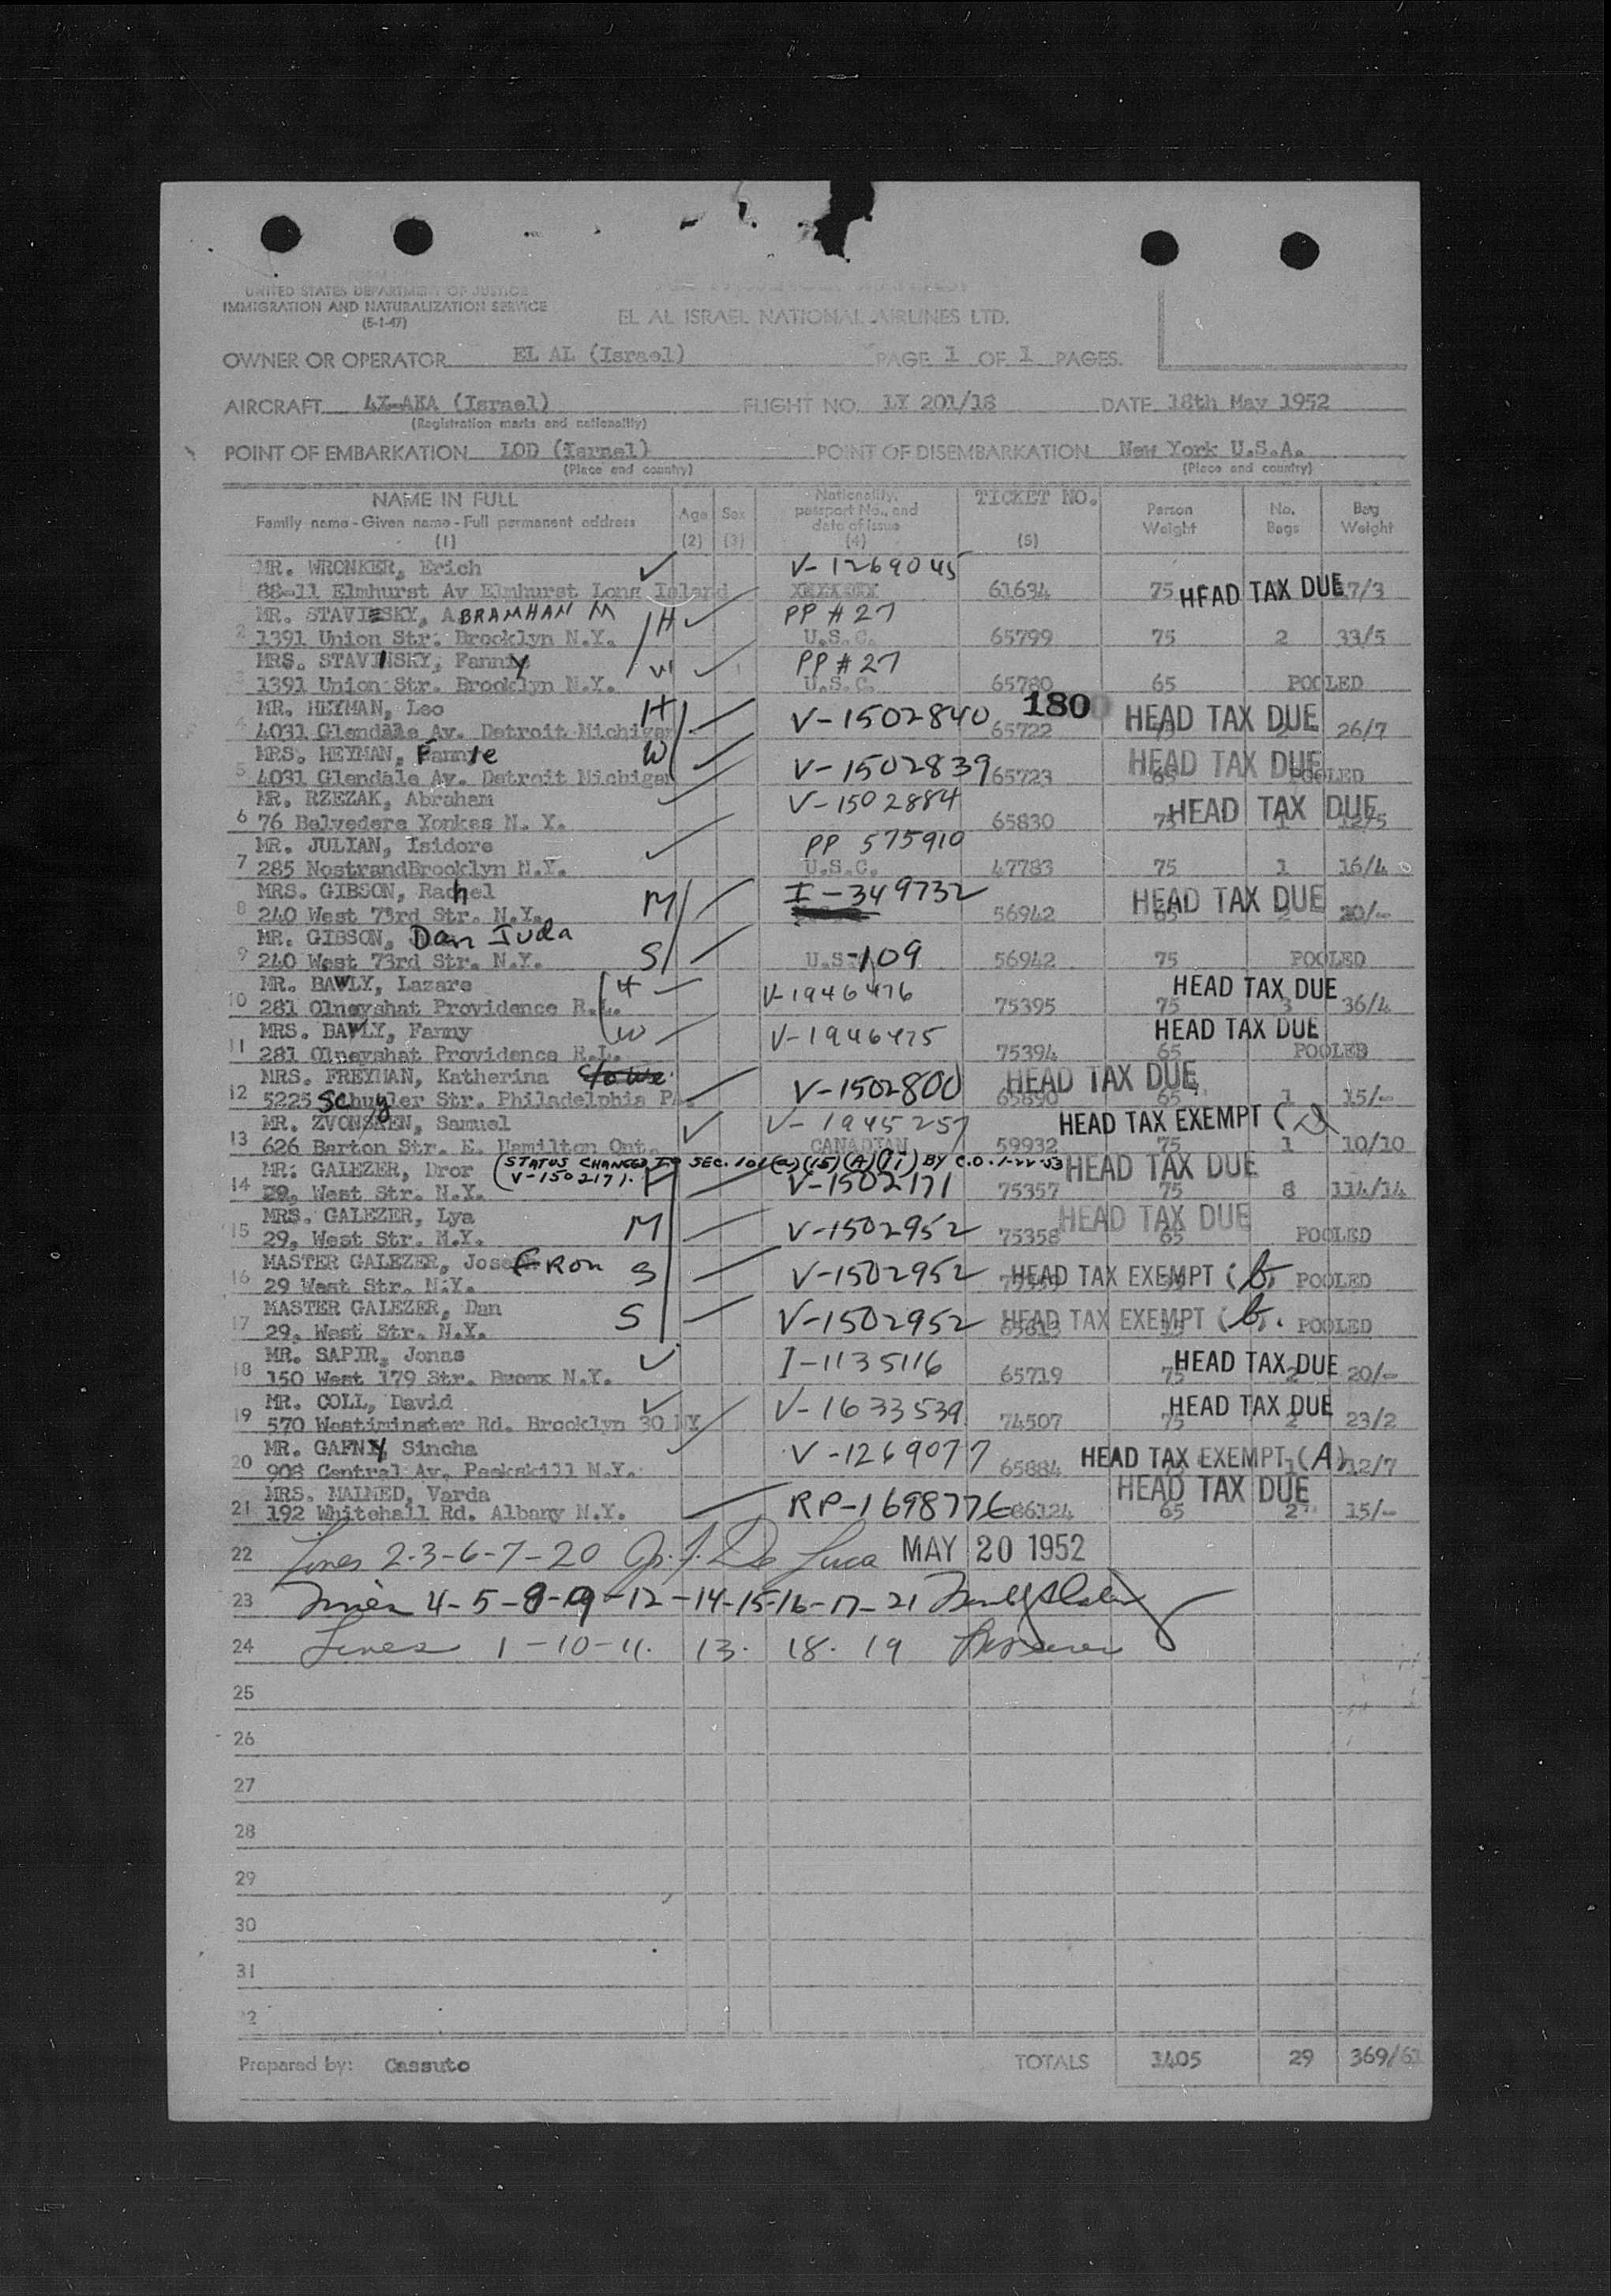 UNITED STATES DEPARTMENT OF JUSTICE
IMMIGRATION AND NATURALIZATION SERVICE
(5-1-47)
EL AL ISRAEL NATIONAL AIRLINES LTD.
OWNER OR OPERATOR EL AL (Israel) PAGE 1 OF 1 PAGES.
AIRCRAFT 4X-AKA (Israel) FLIGHT NO. LY 201/18 DATE 18th May 1952
(Registration marks and nationality)
POINT OF EMBARKATION LOD (Israel) POINT OF DISEMBARKATION New York U.S.A.
(Place and country) (Place and country)
NAME IN FULL Age Sex Nationality, passport No., and date of issue TICKET NO. Person Weight No. Bags Bag Weight
Family name - Given name - Full permanent address
(1) (2) (3) (4) (5)
MR. WRONKER, Erich V-1269045
88-11 Elmhurst Av Elmhurst Long Island 61634 75 HEAD TAX DUE 17/3
MR. STAVISKY, ABRAMHAM M H PP # 27
2 1391 Union Str. Brooklyn N.Y. U.S.C. 65799 75 2 33/5
MRS. STAVISKY, Fanny W PP # 27
3 1391 Union Str. Brooklyn N.Y. U.S.C. 65780 65 POOLED
MR. HEYMAN, Leo H V-1502840 180 HEAD TAX DUE
4 4031 Glendale Av. Detroit Michigan 65722 75 2 26/7
MRS. HEYMAN, Fannie W V-1502839 HEAD TAX DUE
5 4031 Glendale Av. Detroit Michigan 65723 65 POOLED
MR. RZEZAK, Abraham V-1502884 HEAD TAX DUE
6 76 Belvedere Yonkes N. Y. 65830 75 1 12/5
MR. JULIAN, Isidore PP 575910
7 285 NostrandBrooklyn N.Y. U.S.C. 47783 75 1 16/4
MRS. GIBSON, Rachel M I-349732 HEAD TAX DUE
8 240 West 73rd Str. N.Y. 56942 65 2 20/-
MR. GIBSON, Dan Iuda
9 240 West 73rd Str. N.Y. S U.S-109 56942 75 POOLED
MR. BAWLY, Lazare H V-1946476 HEAD TAX DUE
10 281 Olneyshat Providence R.I. 75395 75 3 36/4
MRS. BAWLY, Fanny W V-1946475 HEAD TAX DUE
11 281 Olneyshat Providence R.I. 75394 65 POOLED
MRS. FREYMAN, Katherina V-1502800 HEAD TAX DUE
12 5225 Schuyler Str. Philadelphia Pa. 65890 65 1 15/-
MR. ZVONSKEN, Samuel V-1945257 HEAD TAX EXEMPT
13 626 Barton Str. E. Hamilton Ont. CANADIAN 59932 75 1 10/10
MR. GALEZER, Dror (STATUS CHANGED TO SEC. 101(a)(15)(A)(ii) BY C.O. 1-22-53 HEAD TAX DUE
V-150217).
14 29, West Str. N.Y. V-1502171 75357 75 8 114/14
MRS. GALEZER, Lya M V-1502952 HEAD TAX DUE
15 29, West Str. N.Y. 75358 65 POOLED
MASTER GALEZER, Jose RON S V-1502952 HEAD TAX EXEMPT (b)
16 29 West Str. N.Y. POOLED
MASTER GALEZER, Dan S V-1502952 HEAD TAX EXEMPT (b).
17 29, West Str. N.Y. POOLED
MR. SAPIR, Jonas I-1135116 HEAD TAX DUE
18 150 West 179 Str. Bronx N.Y. 65719 75 2 20/-
MR. COLL, David V-1633539 HEAD TAX DUE
19 570 Westiminster Rd. Brooklyn 30 NY 74507 75 2 23/2
MR. GAFNY, Sincha V-1269077 HEAD TAX EXEMPT (A)
20 908 Central Av. Peekskill N.Y. 65884 1 12/7
MRS. MAIMED, Varda RP-1698776 HEAD TAX DUE
21 192 Whitehall Rd. Albany N.Y. 86124 65 2 15/-
22 Lines 2-3-6-7-20 De Luca MAY 20 1952
23 Lines 4-5-8-9-12-14-15-16-17-21
24 Lines 1-10-11. 13. 18. 19
25
26
27
28
29
30
31
Prepared by: Cassuto TOTALS 1405 29 369/61